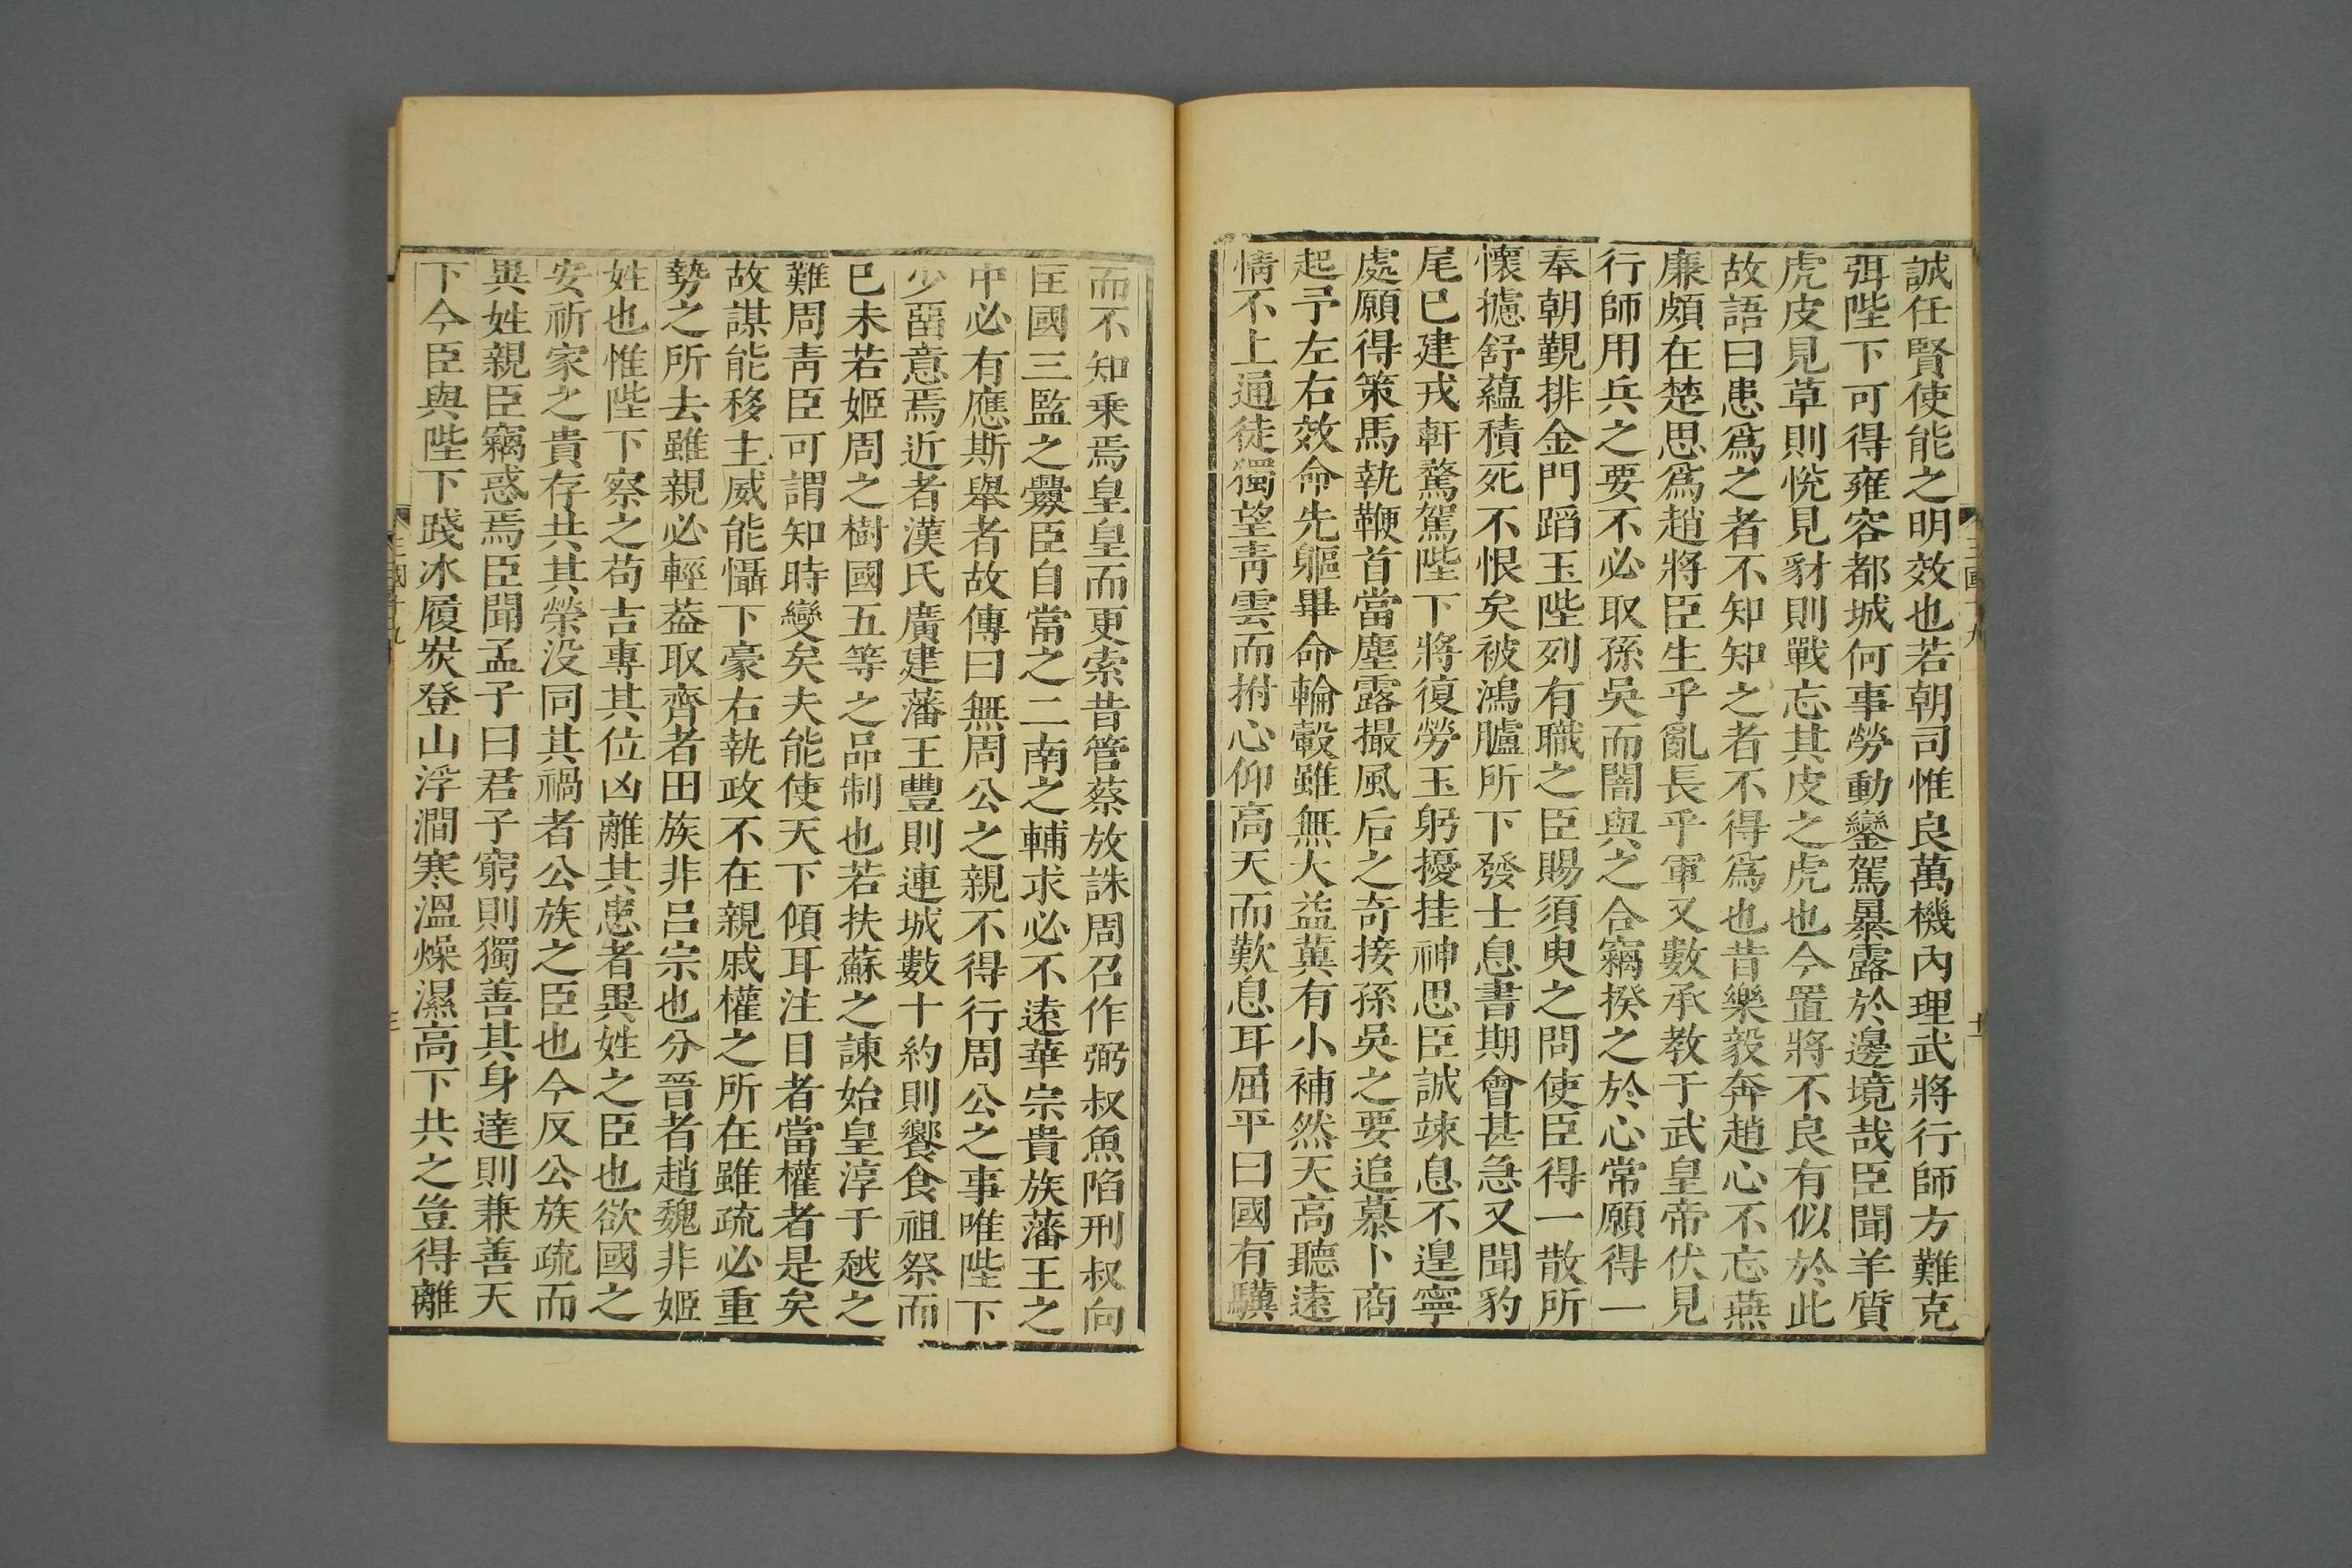 誠任賢使能之明效也若朝司惟良萬機內理武將行師方難克
弭陛下可得雍容都城何事勞動鑾駕暴露於邊境哉臣聞羊質
虎皮見草則悅見豺則戰忘其皮之虎也今置將不良有似於此
故語曰患爲之者不知知之者不得爲也昔樂毅奔趙心不忘燕
廉頗在楚思爲趙將臣生乎亂長乎軍又數承教于武皇帝伏見
行師用兵之要不必取孫吳而闇與之合竊揆之於心常願得一
奉朝覲排金門蹈玉陛列有職之臣賜須臾之問使臣得一散所
懷攄舒蘊積死不恨矣被鴻臚所下發士息書期會甚急又聞豹
尾已建戎軒鶩駕陛下將復勞玉躬擾挂神思臣誠竦息不遑寧
處願得策馬執鞭首當塵露撮風后之奇接孫吳之要追慕卜商
起予左右效命先軀畢命輪轂雖無大益冀有小補然天高聽遠
情不上通徒獨望靑雲而拊心仰高天而歎息耳屈平曰國有驥
而不知乘焉皇皇而更索昔管蔡放誅周召作弼叔魚陷刑叔向
匡國三監之釁臣自當之二南之輔求必不遠華宗貴族藩王之
中必有應斯舉者故傳曰無周公之親不得行周公之事唯陛下
少畱意焉近者漢氏廣建藩王豐則連城數十約則饗食祖祭而
已未若姬周之樹國五等之品制也若扶蘇之諫始皇淳于越之
難周靑臣可謂知時變矣夫能使天下傾耳注目者當權者是矣
故謀能移主威能懾下豪右執政不在親戚權之所在雖疏必重
勢之所去雖親必輕葢取齊者田族非呂宗也分晉者趙魏非姬
姓也惟陛下察之苟吉專其位凶離其患者異姓之臣也欲國之
安祈家之貴存共其榮沒同其禍者公族之臣也今反公族疏而
異姓親臣竊惑焉臣聞孟子曰君子窮則獨善其身達則兼善天
下今臣與陛下踐氷履炭登山浮澗寒溫燥濕高下共之豈得離
三國十九